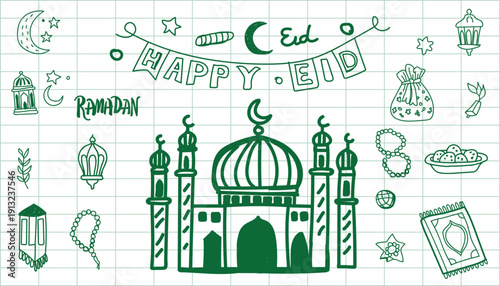 Eid
HAPPY EID
RAMADAN
Adobe Stock | #1913237546